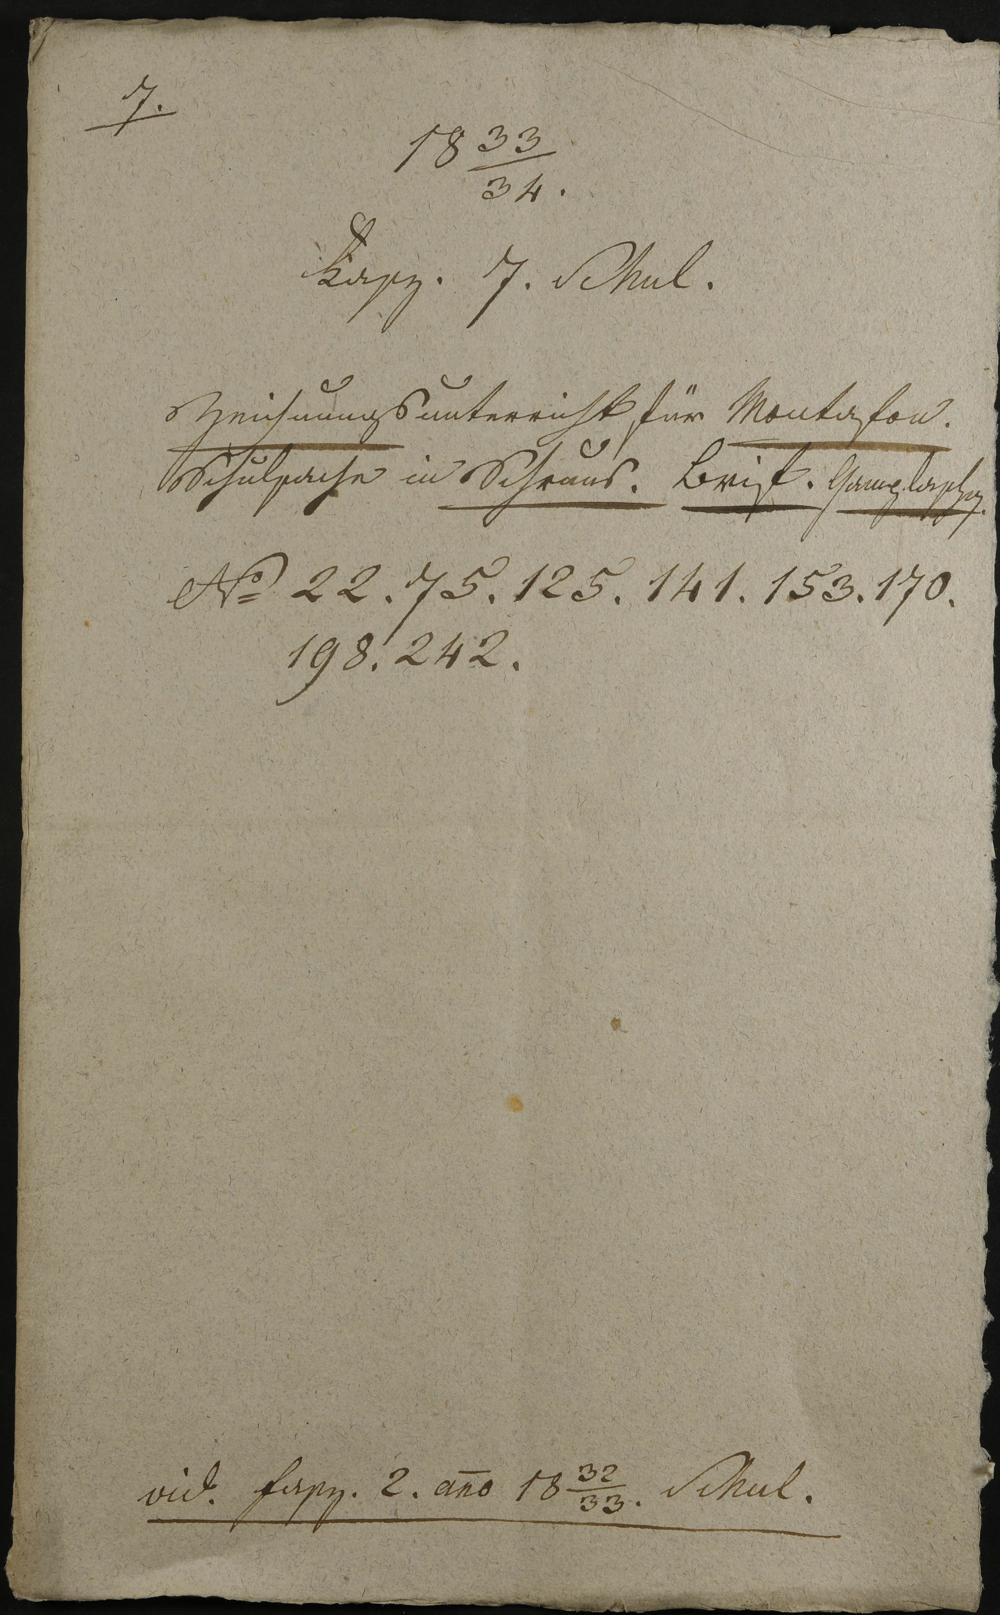 7.
18 33/34.
Fasz. 7. Schul.
Zeichnungsunterricht für Montafon.
Schulsache in Schruns. Brist. Gamplaschg.
No 22. 75. 125. 141. 153. 170.
198. 242.
vid. fasz. 2. ano 18 32/33. Schul.